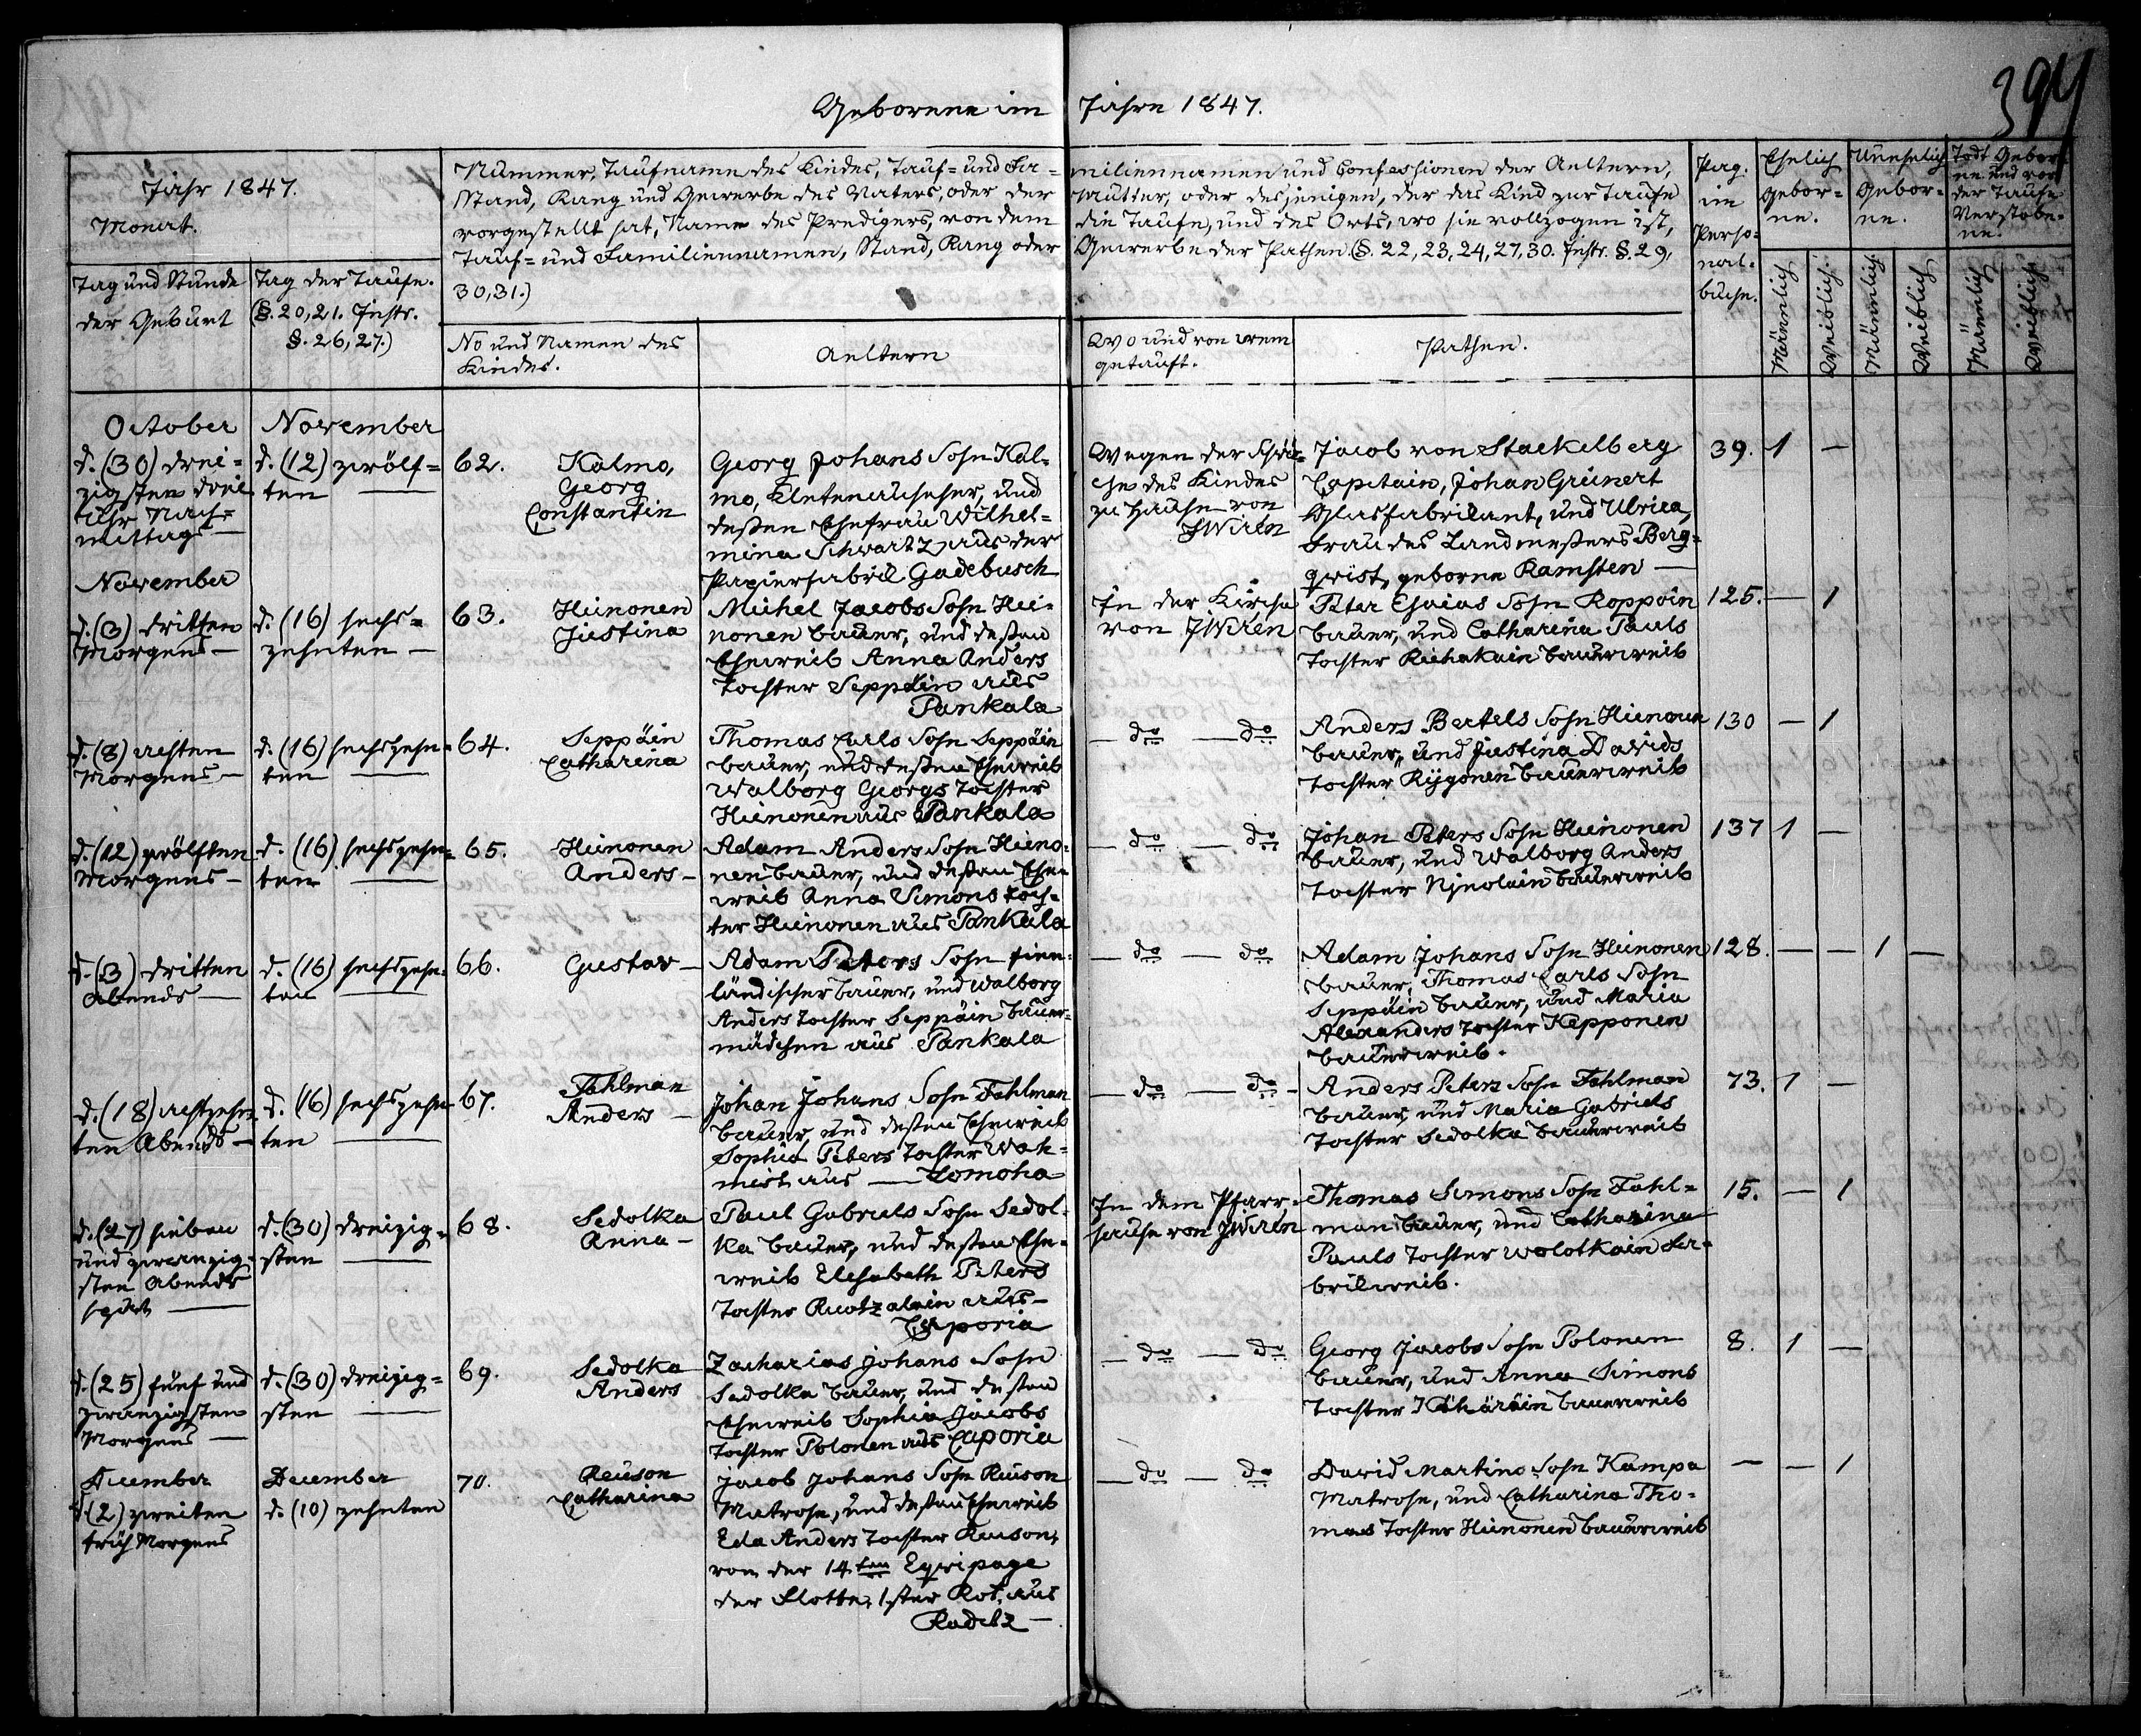 394
Geborene im Jahre 1847.
Jahr 1847.
Monat.
Tag und Stunde
der Geburt
Tag der Taufe.
(§. 20, 21. Instr.
§. 26, 27.)
Nummer, Taufname des Kindes, Tauf= und Fa=miliennamen und Confessionen der Aeltern,
Stand, Rang und Gewerbe des Vaters, oder der Mutter, oder desjenigen, der das Kind zur Taufe
vorgestellt hat, Name des Predigers, von dem die Taufe, und des Orts, wo sie vollzogen ist,
Tauf= und Familiennamen, Stand, Rang oder Gewerbe der Pathen. (§. 22, 23, 24, 27, 30. Instr. §. 29,
30, 31.)
No und Namen des
Kindes.
Aeltern
Wo und von wem
getauft.
Pathen.
Pag.
im
Perso=
nal=
buche.
Ehelich
Gebor=
ne.
Unehelich
Gebor=
ne.
Todt Gebor=
ne und vor
der Taufe
Verstorbe=
ne.
Männlich
Weiblich
Männlich
Weiblich
Männlich
Weiblich
October
d. (30) drei=
zigsten drei
Uhr Nach=
mittags —
November
d. (12) zwölf=
ten —
62.
Kalmo,
Georg
Constantin
Georg Johans Sohn Kal=
mo, Kletenaufseher, und
dessen Ehefrau Wilhel=
mina Schwartz aus der
Papierfabrik Gadebusch
Wegen der Schwä=
che des Kindes
zu Hause von
JWiren
Jacob von Stackelberg
Capitain, Johan Grünert
Glasfabrikant, und Ulrica,
Frau des Landmessers Berg=
qwist, geborne Ramsten —
39. 1 —
November
d. (3) dritten
Morgens —
d. (16) sechs=
zehnten —
63.
Hünonen
Justina
Michel Jacobs Sohn Hü=
nonen Bauer, und dessen
Eheweib Anna Anders
Tochter Seppäin aus
Pankala
In der Kirche
von JWiren
Peter Esaias Sohn Roppoin
Bauer, und Catharina Pauls
Tochter Riehakain Bauerweib
125. — 1
d. (8) achten
Morgens —
d. (16) sechszehn=
ten —
64.
Seppäin
Catharina
Thomas Carls Sohn Seppäin
Bauer, und dessen Eheweib
Walborg Georgs Tochter
Hünonen aus Pankala
— do — do
Anders Bertels Sohn Hünonen
Bauer, und Justina Davids
Tochter Rÿgönen Bauerweib
130 — 1
d. (12) zwölften
Morgens —
d. (16) sechszehn=
ten —
65.
Hünonen
Anders —
Adam Anders Sohn Hüno=
nen Bauer, und dessen Ehe=
weib Anna Simons Toch=
ter Hünonen aus Pankala
— do — do
Johan Peters Sohn Hünonen
Bauer, und Walborg Anders
Tochter Bauerweib
137 1 —
d. (3) dritten
Abends —
d. (16) sechszehn=
ten —
66.
Gustav —
Adam Peters Sohn finn=
ländischer Bauer, und Walborg
Anders Tochter Seppäin Bauer=
mädchen aus Pankala
— do — do
Adam Johans Sohn Hünonen
Bauer, Thomas Carls Sohn
Seppäin Bauer, und Maria
Alexanders Tochter Kepponen
Bauerweib.
128. — — 1 —
d. (18) achtzehn=
ten Abends —
d. (16) sechszehn=
ten —
67.
Fahlman
Anders —
Johan Johans Sohn Fahlman
Bauer, und dessen Eheweib
Sophia Peters Tochter Wah=
mist aus — Lomoha
— do — do —
Anders Peters Sohn Fahlman
Bauer, und Maria Gabriels
Tochter Sedolka Bauerweib
73. 1 —
d. (27) sieben
und zwanzig=
sten Abends
spät —
d. (30) dreizig=
sten —
68.
Sedolka
Anna —
Paul Gabriels Sohn Sedol=
ka Bauer, und dessen Ehe=
weib Elisabeth Peters
Tochter aus —
Caporia
In dem Pfarr=
hause von JWiren
Thomas Simons Sohn Fahl=
man Bauer, und Catharina
Pauls Tochter Wolotkain Fa=
brikweib.
15. — 1
d. (25) fünf und
zwanzigsten
Morgens —
d. (30) dreizig=
sten —
69.
Sedolka
Anders
Zacharias Johans Sohn
Sedolka Bauer, und dessen
Eheweib Sophia Jacobs
Tochter Polonen aus Caporia
— do — do
Georg Jacobs Sohn Polonen
Bauer, und Anna Simons
Tochter Bauerweib
8. 1 —
December
d. (2) zweiten
früh Morgens
December
d. (10) zehnten
70.
Reuson
Catharina
Jacob Johans Sohn Reuson
Matrose, und dessen Eheweib
Eda Anders Tochter Reuson,
von der 14ten Eqwipage
der Flotte, 1ster Rot. aus
Raditz —
— do — do
David Martins Sohn Kampa
Matrose, und Catharina Tho=
mas Tochter Hünonen Bauerweib
— — 1